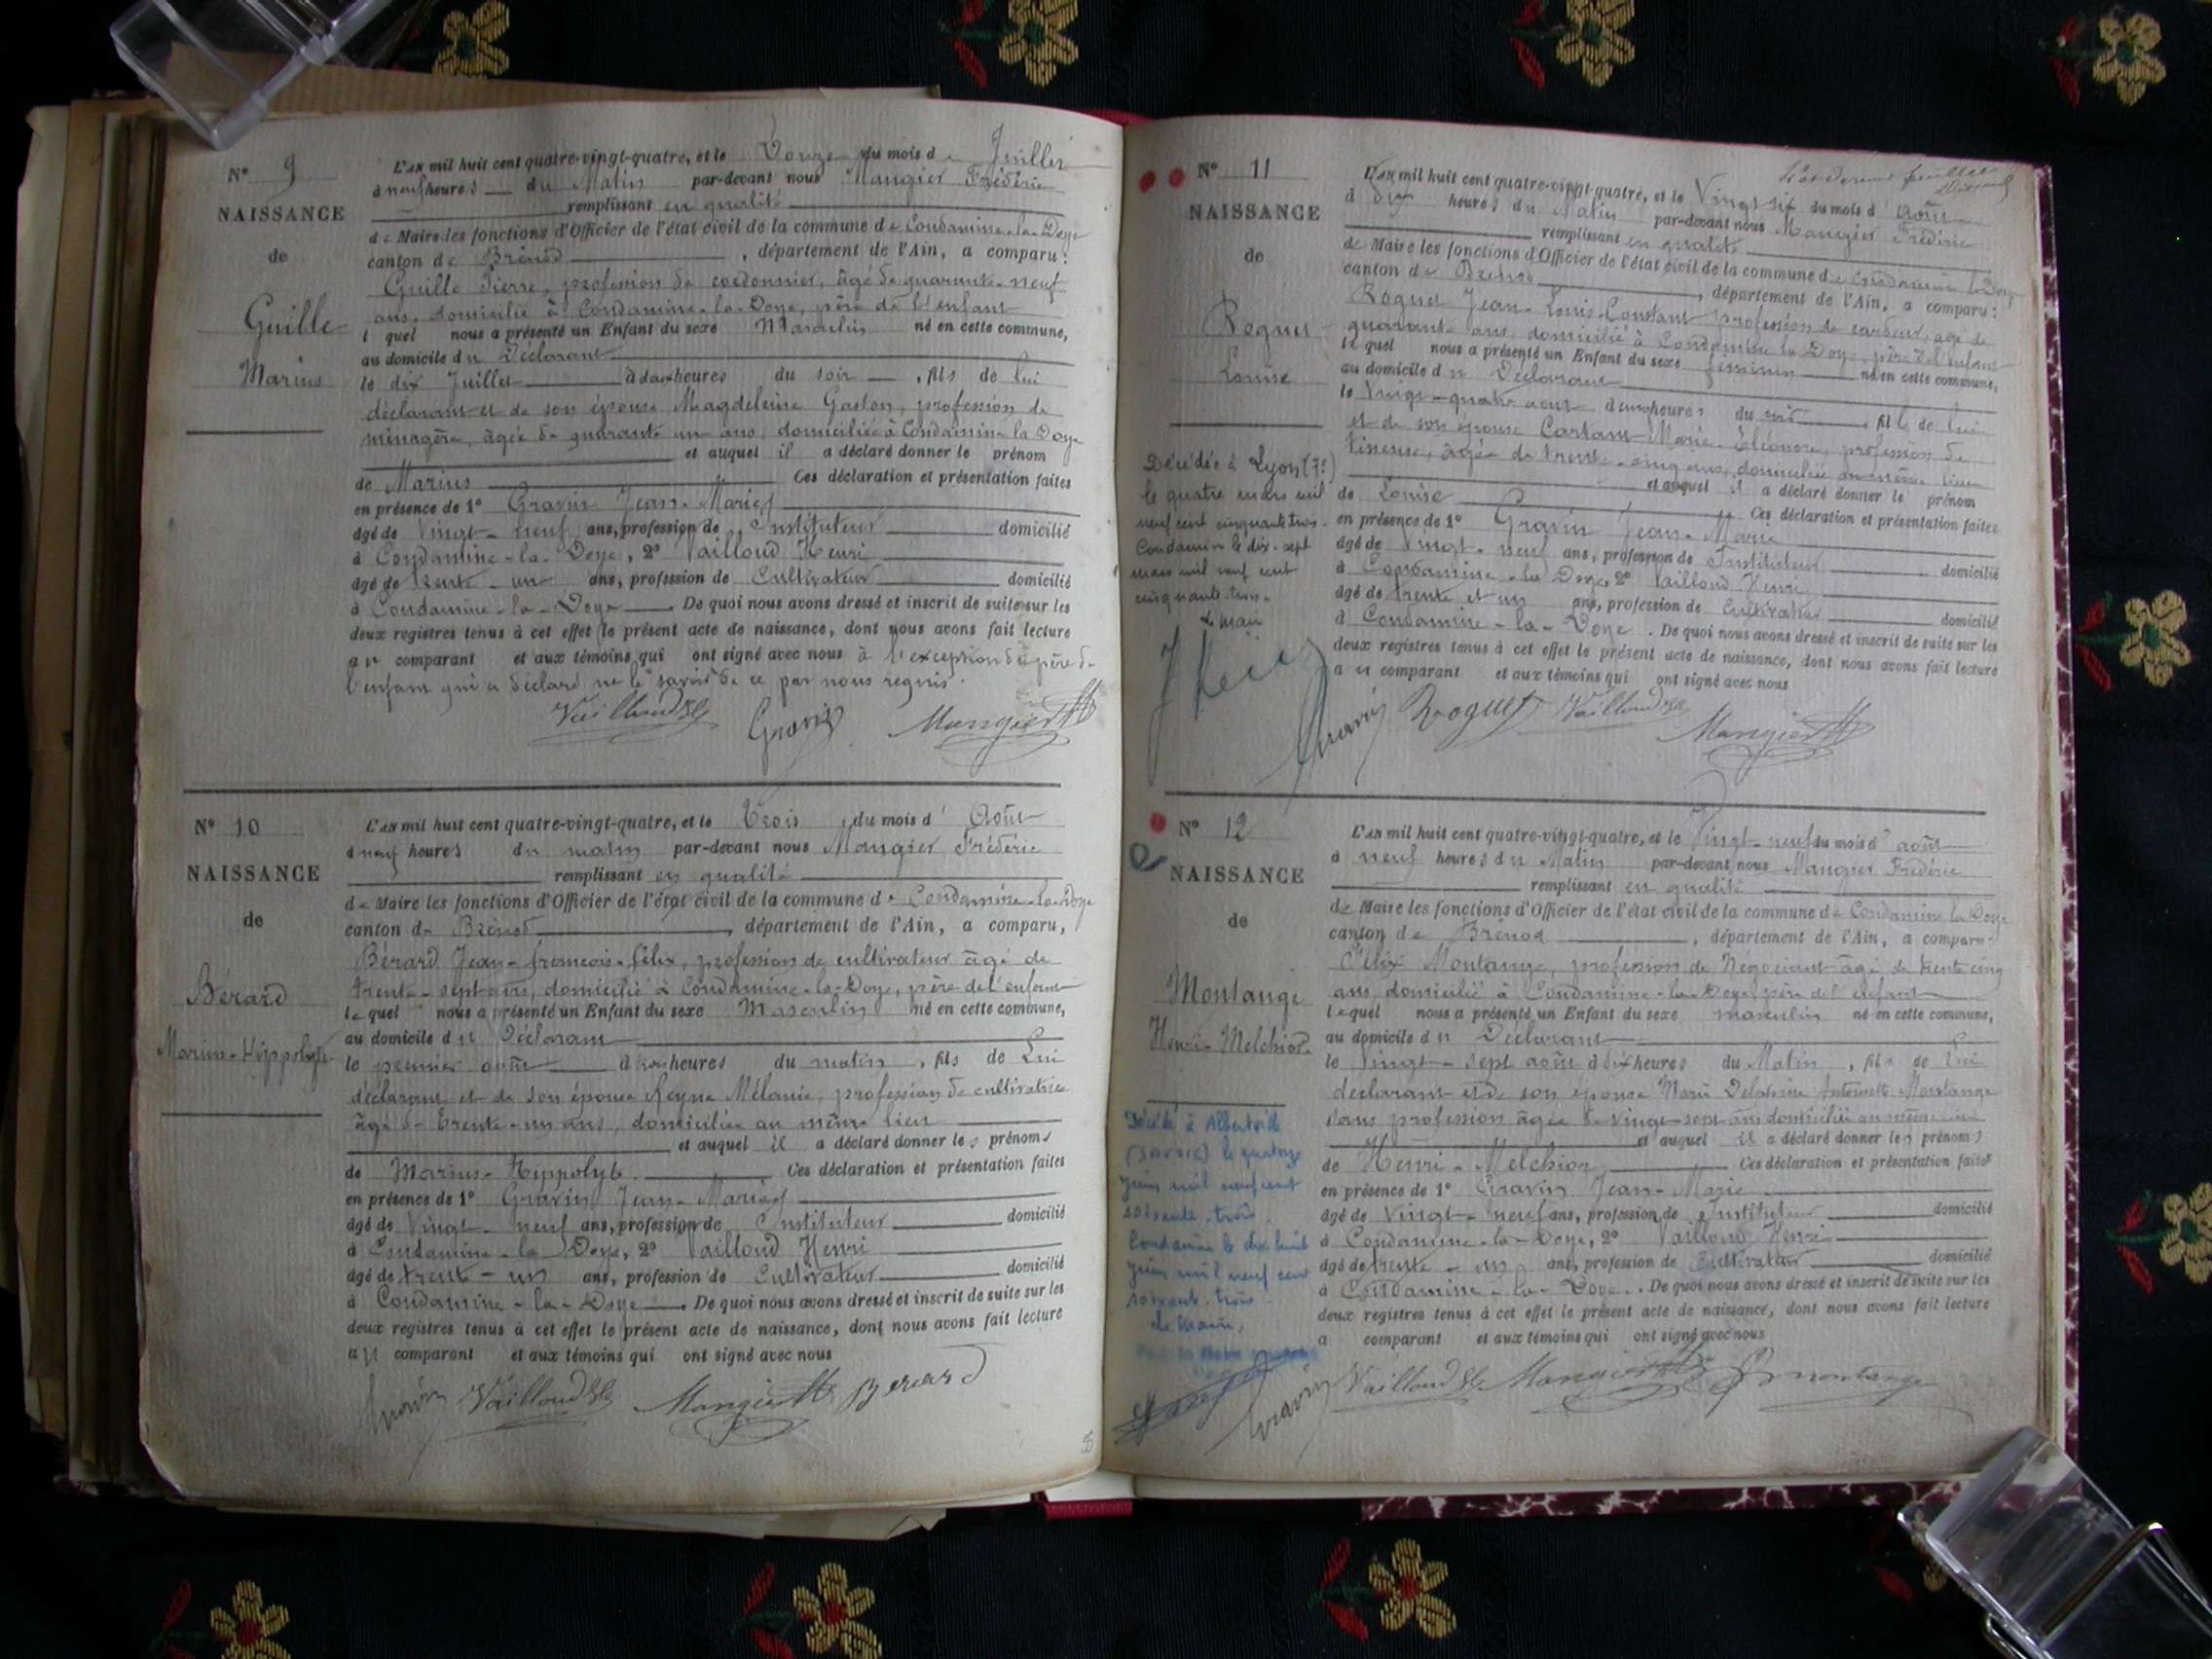 N° 9
NAISSANCE
de
Guille
Marius
L'an mil huit cent quatre-vingt-quatre, et le Douze du mois de Juillet
à neuf heures du Matin par-devant nous Mangier Frédéric
remplissant en qualité
de Maire les fonctions d'Officier de l'état civil de la commune de Condamine-la-Doye
canton de Brénod, département de l'Ain, a comparu :
Guille Pierre, profession de cordonnier, âgé de quarante-neuf
ans, domicilié à Condamine-la-Doye, père de l'enfant
lequel nous a présenté un Enfant du sexe Masculin né en cette commune,
au domicile du Déclarant
le dix Juillet à deux heures du soir, fils de lui
déclarant et de son épouse Magdeleine Gaston, profession de
ménagère, âgée de quarante un ans, domiciliée à Condamine la Doye
et auquel il a déclaré donner le prénom
de Marius Ces déclaration et présentation faites
en présence de 1° Gravin Jean-Marie
âgé de Vingt-neuf ans, profession de Instituteur domicilié
à Condamine-la-Doye, 2° Vailloud Henri
âgé de trente-un ans, profession de Cultivateur domicilié
à Condamine-la-Doye. De quoi nous avons dressé et inscrit de suite sur les
deux registres tenus à cet effet le présent acte de naissance, dont nous avons fait lecture
au comparant et aux témoins qui ont signé avec nous à l'exception du père de
l'enfant qui a déclaré ne le savoir de ce par nous requis.
Vailloud Gravin Mangier
N° 10
NAISSANCE
de
Bérard
Marius-Hippolyte
L'an mil huit cent quatre-vingt-quatre, et le Trois du mois d'Août
à neuf heures du matin par-devant nous Mangier Frédéric
remplissant en qualité
de Maire les fonctions d'Officier de l'état civil de la commune de Condamine-la-Doye
canton de Brénod, département de l'Ain, a comparu,
Bérard Jean-françois-félix, profession de cultivateur âgé de
trente-sept ans, domicilié à Condamine-la-Doye, père de l'enfant
lequel nous a présenté un Enfant du sexe Masculin né en cette commune,
au domicile du Déclarant
le premier août à heures du matin, fils de Lui
déclarant et de son épouse Reyne Mélanie, profession de cultivatrice
âgé de trente-un ans, domiciliée au même lieu
et auquel il a déclaré donner les prénoms
de Marius-Hippolyte. Ces déclaration et présentation faites
en présence de 1° Gravin Jean-Marie
âgé de Vingt-neuf ans, profession de Instituteur domicilié
à Condamine-la-Doye, 2° Vailloud Henri
âgé de trente-un ans, profession de Cultivateur domicilié
à Condamine-la-Doye. De quoi nous avons dressé et inscrit de suite sur les
deux registres tenus à cet effet le présent acte de naissance, dont nous avons fait lecture
au comparant et aux témoins qui ont signé avec nous
Gravin Vailloud Mangier Berard
N° 11
NAISSANCE
de
Roguet
Louise
Décédée à Lyon (7e)
le quatre mars mil
neuf cent cinquante trois.
Condamine le dix-sept
mars mil neuf cent
cinquante-trois.
Le Maire
feuillet
L'an mil huit cent quatre-vingt-quatre, et le Vingt six du mois d'août
à dix heures du Matin par-devant nous Mangier Frédéric
remplissant en qualité
de Maire les fonctions d'Officier de l'état civil de la commune de Condamine la Doye
canton de Brénod, département de l'Ain, a comparu :
Roguet Jean-Louis-Constant profession de cardeur, âgé de
quarante ans, domicilié à Condamine la Doye, père de l'enfant
lequel nous a présenté un Enfant du sexe féminin né en cette commune,
au domicile du Déclarant
le Vingt-quatre aout à heures du soir, fille de lui
et de son épouse Marie-Eléonore, profession de
tisseuse, âgée de trente-cinq ans, domiciliée au même lieu
et auquel il a déclaré donner le prénom
de Louise Ces déclaration et présentation faites
en présence de 1° Gravin Jean-Marie
âgé de Vingt-neuf ans, profession de Instituteur domicilié
à Condamine-la-Doye, 2° Vailloud Henri
âgé de trente et un ans, profession de Cultivateur domicilié
à Condamine-la-Doye. De quoi nous avons dressé et inscrit de suite sur les
deux registres tenus à cet effet le présent acte de naissance, dont nous avons fait lecture
au comparant et aux témoins qui ont signé avec nous
Gravin Roguet Vailloud Mangier
N° 12
NAISSANCE
de
Montange
Henri-Melchior
Décédé à Albertville
(Savoie) le quatorze
juin mil neuf cent
soixante-trois.
Condamine le dix huit
juin mil neuf cent
soixante-trois.
Le Maire,
L'an mil huit cent quatre-vingt-quatre, et le Vingt-neuf du mois d'août
à neuf heures du Matin par-devant nous Mangier Frédéric
remplissant en qualité
de Maire les fonctions d'Officier de l'état civil de la commune de Condamine la Doye
canton de Brénod, département de l'Ain, a comparu
Félix Montange, profession de Négociant âgé de trente cinq
ans, domicilié à Condamine-la-Doye, père de l'enfant
lequel nous a présenté un Enfant du sexe masculin né en cette commune,
au domicile du Déclarant
le Vingt-sept août à dix heures du Matin, fils de Lui
déclarant et de son épouse Marie Delphine Antoinette Montange
sans profession âgée de vingt-sept ans domiciliée au même lieu
et auquel il a déclaré donner les prénoms
de Henri-Melchior Ces déclaration et présentation faites
en présence de 1° Gravin Jean-Marie
âgé de Vingt-neuf ans, profession de Instituteur domicilié
à Condamine-la-Doye, 2° Vailloud Henri
âgé de trente-un ans, profession de Cultivateur domicilié
à Condamine-la-Doye. De quoi nous avons dressé et inscrit de suite sur les
deux registres tenus à cet effet le présent acte de naissance, dont nous avons fait lecture
a comparant et aux témoins qui ont signé avec nous
Gravin Vailloud Mangier montange